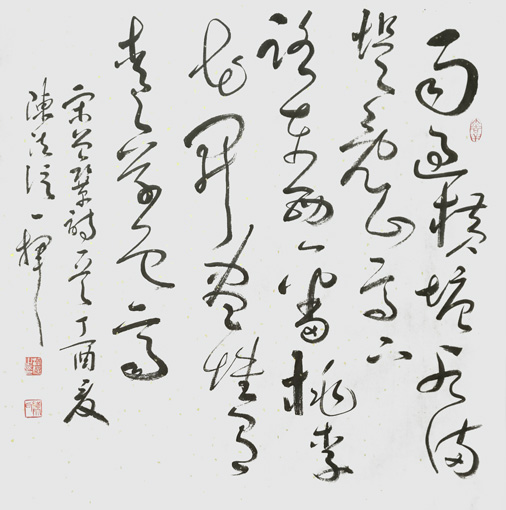 雨過橫塘水滿
堤亂山高下
路東西一番桃李
花開盡惟有
青々草色齊
宋曾鞏詩一首丁酉夏
陳 一揮